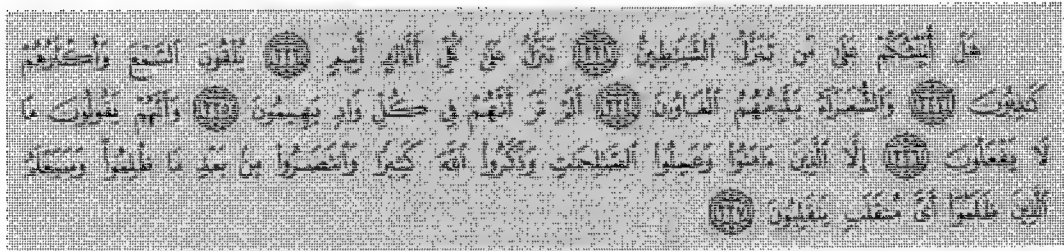 هَلْ أُنَبِّئُكُمْ عَلَىٰ مَن تَنَزَّلُ ٱلشَّيَـٰطِينُ ﴿٢٢١﴾ تَنَزَّلُ عَلَىٰ كُلِّ أَفَّاكٍ أَثِيمٍ ﴿٢٢٢﴾ يُلْقُونَ ٱلسَّمْعَ وَأَكْثَرُهُمْ
كَـٰذِبُونَ ﴿٢٢٣﴾ وَٱلشُّعَرَآءُ يَتَّبِعُهُمُ ٱلْغَاوُۥنَ ﴿٢٢٤﴾ أَلَمْ تَرَ أَنَّهُمْ فِى كُلِّ وَادٍ يَهِيمُونَ ﴿٢٢٥﴾ وَأَنَّهُمْ يَقُولُونَ مَا
لَا يَفْعَلُونَ ﴿٢٢٦﴾ إِلَّا ٱلَّذِينَ ءَامَنُوا۟ وَعَمِلُوا۟ ٱلصَّـٰلِحَـٰتِ وَذَكَرُوا۟ ٱللَّهَ كَثِيرًا وَٱنتَصَرُوا۟ مِنۢ بَعْدِ مَا ظُلِمُوا۟ وَسَيَعْلَمُ
ٱلَّذِينَ ظَلَمُوٓا۟ أَىَّ مُنقَلَبٍ يَنقَلِبُونَ ﴿٢٢٧﴾